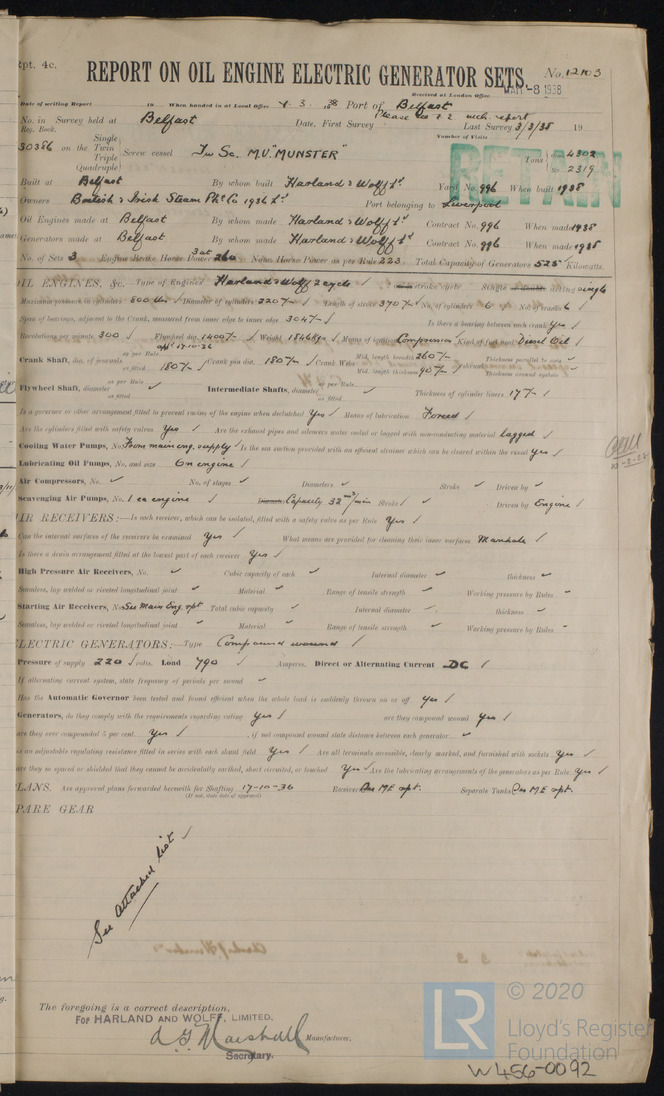 Rpt. 4c.
REPORT ON OIL ENGINE ELECTRIC GENERATOR SETS.
No. 12103
Received at London Office MAR -8 1938
Date of writing Report 19 When handed in at Local Office 4. 3. 1938 Port of Belfast
Please see 1.2 mch. report
No. in Survey held at Belfast Date, First Survey Last Survey 3/3/38 19
Reg. Book. Number of Visits
30386 on the Single Twin Triple Quadruple Screw vessel Tw Sc. M.V. "MUNSTER" Tons 4302 2319
RETAIN
Built at Belfast By whom built Harland & Wolff Ld Yard No. 996 When built 1938
Owners British & Irish Steam Pkt Co 1936 Ld Port belonging to Liverpool
Oil Engines made at Belfast By whom made Harland & Wolff Ld Contract No. 996 When made 1938
Generators made at Belfast By whom made Harland & Wolff Ld Contract No. 996 When made 1938
No. of Sets 3 Engine Brake Horse Power 3 at 260 Nom. Horse Power as per Rule 223 Total Capacity of Generators 525 Kilowatts.
OIL ENGINES, &c. Type of Engines Harland & Wolff 2 cycle stroke cycle Single acting single
Maximum pressure in cylinders 800 lbs Diameter of cylinders 220 7/- Length of stroke 370 7/- No. of cylinders 6 No. of cranks 6
Span of bearings, adjacent to the Crank, measured from inner edge to inner edge 304 7/- Is there a bearing between each crank Yes
Revolutions per minute 300 Flywheel dia. 1400 7/- Weight 1846 Kgs Means of ignition Compression Kind of fuel used Diesel Oil
Crank Shaft, dia. of journals as per Rule appd 17.10.36 as fitted 180 7/- Crank pin dia. 180 7/- Crank Webs Mid. length breadth 260 7/- Mid. length thickness 90 7/- Thickness parallel to axis Thickness around eyehole
Flywheel Shaft, diameter as per Rule as fitted Intermediate Shafts, diameter as per Rule as fitted Thickness of cylinder liners 17 7/-
Is a governor or other arrangement fitted to prevent racing of the engine when declutched Yes Means of lubrication Forced
Are the cylinders fitted with safety valves Yes Are the exhaust pipes and silencers water cooled or lagged with non-conducting material lagged
Cooling Water Pumps, No. From main eng. supply Is the sea suction provided with an efficient strainer which can be cleared within the vessel yes
Lubricating Oil Pumps, No. and size On engine
Air Compressors, No. No. of stages Diameters Stroke Driven by
Scavenging Air Pumps, No. 1 ea engine Capacity 32 m3/min Stroke Driven by Engine
AIR RECEIVERS:—Is each receiver, which can be isolated, fitted with a safety valve as per Rule Yes
Can the internal surfaces of the receivers be examined Yes What means are provided for cleaning their inner surfaces Manhole
Is there a drain arrangement fitted at the lowest part of each receiver Yes
High Pressure Air Receivers, No. Cubic capacity of each Internal diameter thickness
Seamless, lap welded or riveted longitudinal joint Material Range of tensile strength Working pressure by Rules
Starting Air Receivers, No. See Main Eng. rpt Total cubic capacity Internal diameter thickness
Seamless, lap welded or riveted longitudinal joint Material Range of tensile strength Working pressure by Rules
ELECTRIC GENERATORS:—Type Compound wound
Pressure of supply 220 volts. Load 790 Amperes. Direct or Alternating Current DC
If alternating current system, state frequency of periods per second
Has the Automatic Governor been tested and found efficient when the whole load is suddenly thrown on or off yes
Generators, do they comply with the requirements regarding rating Yes are they compound wound yes
are they over compounded 5 per cent. Yes , if not compound wound state distance between each generator
is an adjustable regulating resistance fitted in series with each shunt field Yes Are all terminals accessible, clearly marked, and furnished with sockets Yes
are they so spaced or shielded that they cannot be accidentally earthed, short circuited, or touched Yes Are the lubricating arrangements of the generators as per Rule Yes
PLANS. Are approved plans forwarded herewith for Shafting 17-10-36 Receivers See ME rpt. Separate Tanks See ME rpt.
(If not, state date of approval)
SPARE GEAR
See attached list
The foregoing is a correct description,
For HARLAND AND WOLFF, LIMITED.
A G Marshall Manufacturer.
Secretary.
LR
© 2020
Lloyd's Register
Foundation
W456-0092